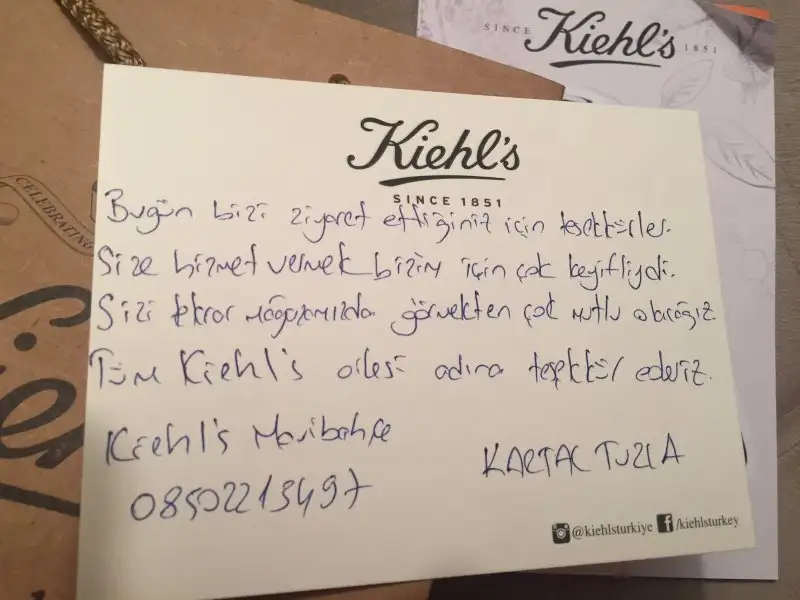 SINCE Kiehl's 1851
Kiehl's
SINCE 1851
CELEBRATING
Bugün bizi ziyaret ettiğiniz için teşekkürler.
Size hizmet vermek bizim için çok keyifliydi.
Sizi tekrar mağazamızda görmekten çok mutlu olacağız
Tüm Kiehl's ailesi adına teşekkür ederiz.
Kiehl's Mavibahçe
08502213497
KARTAL TUZLA
@kiehlsturkiye f/kiehlsturkey